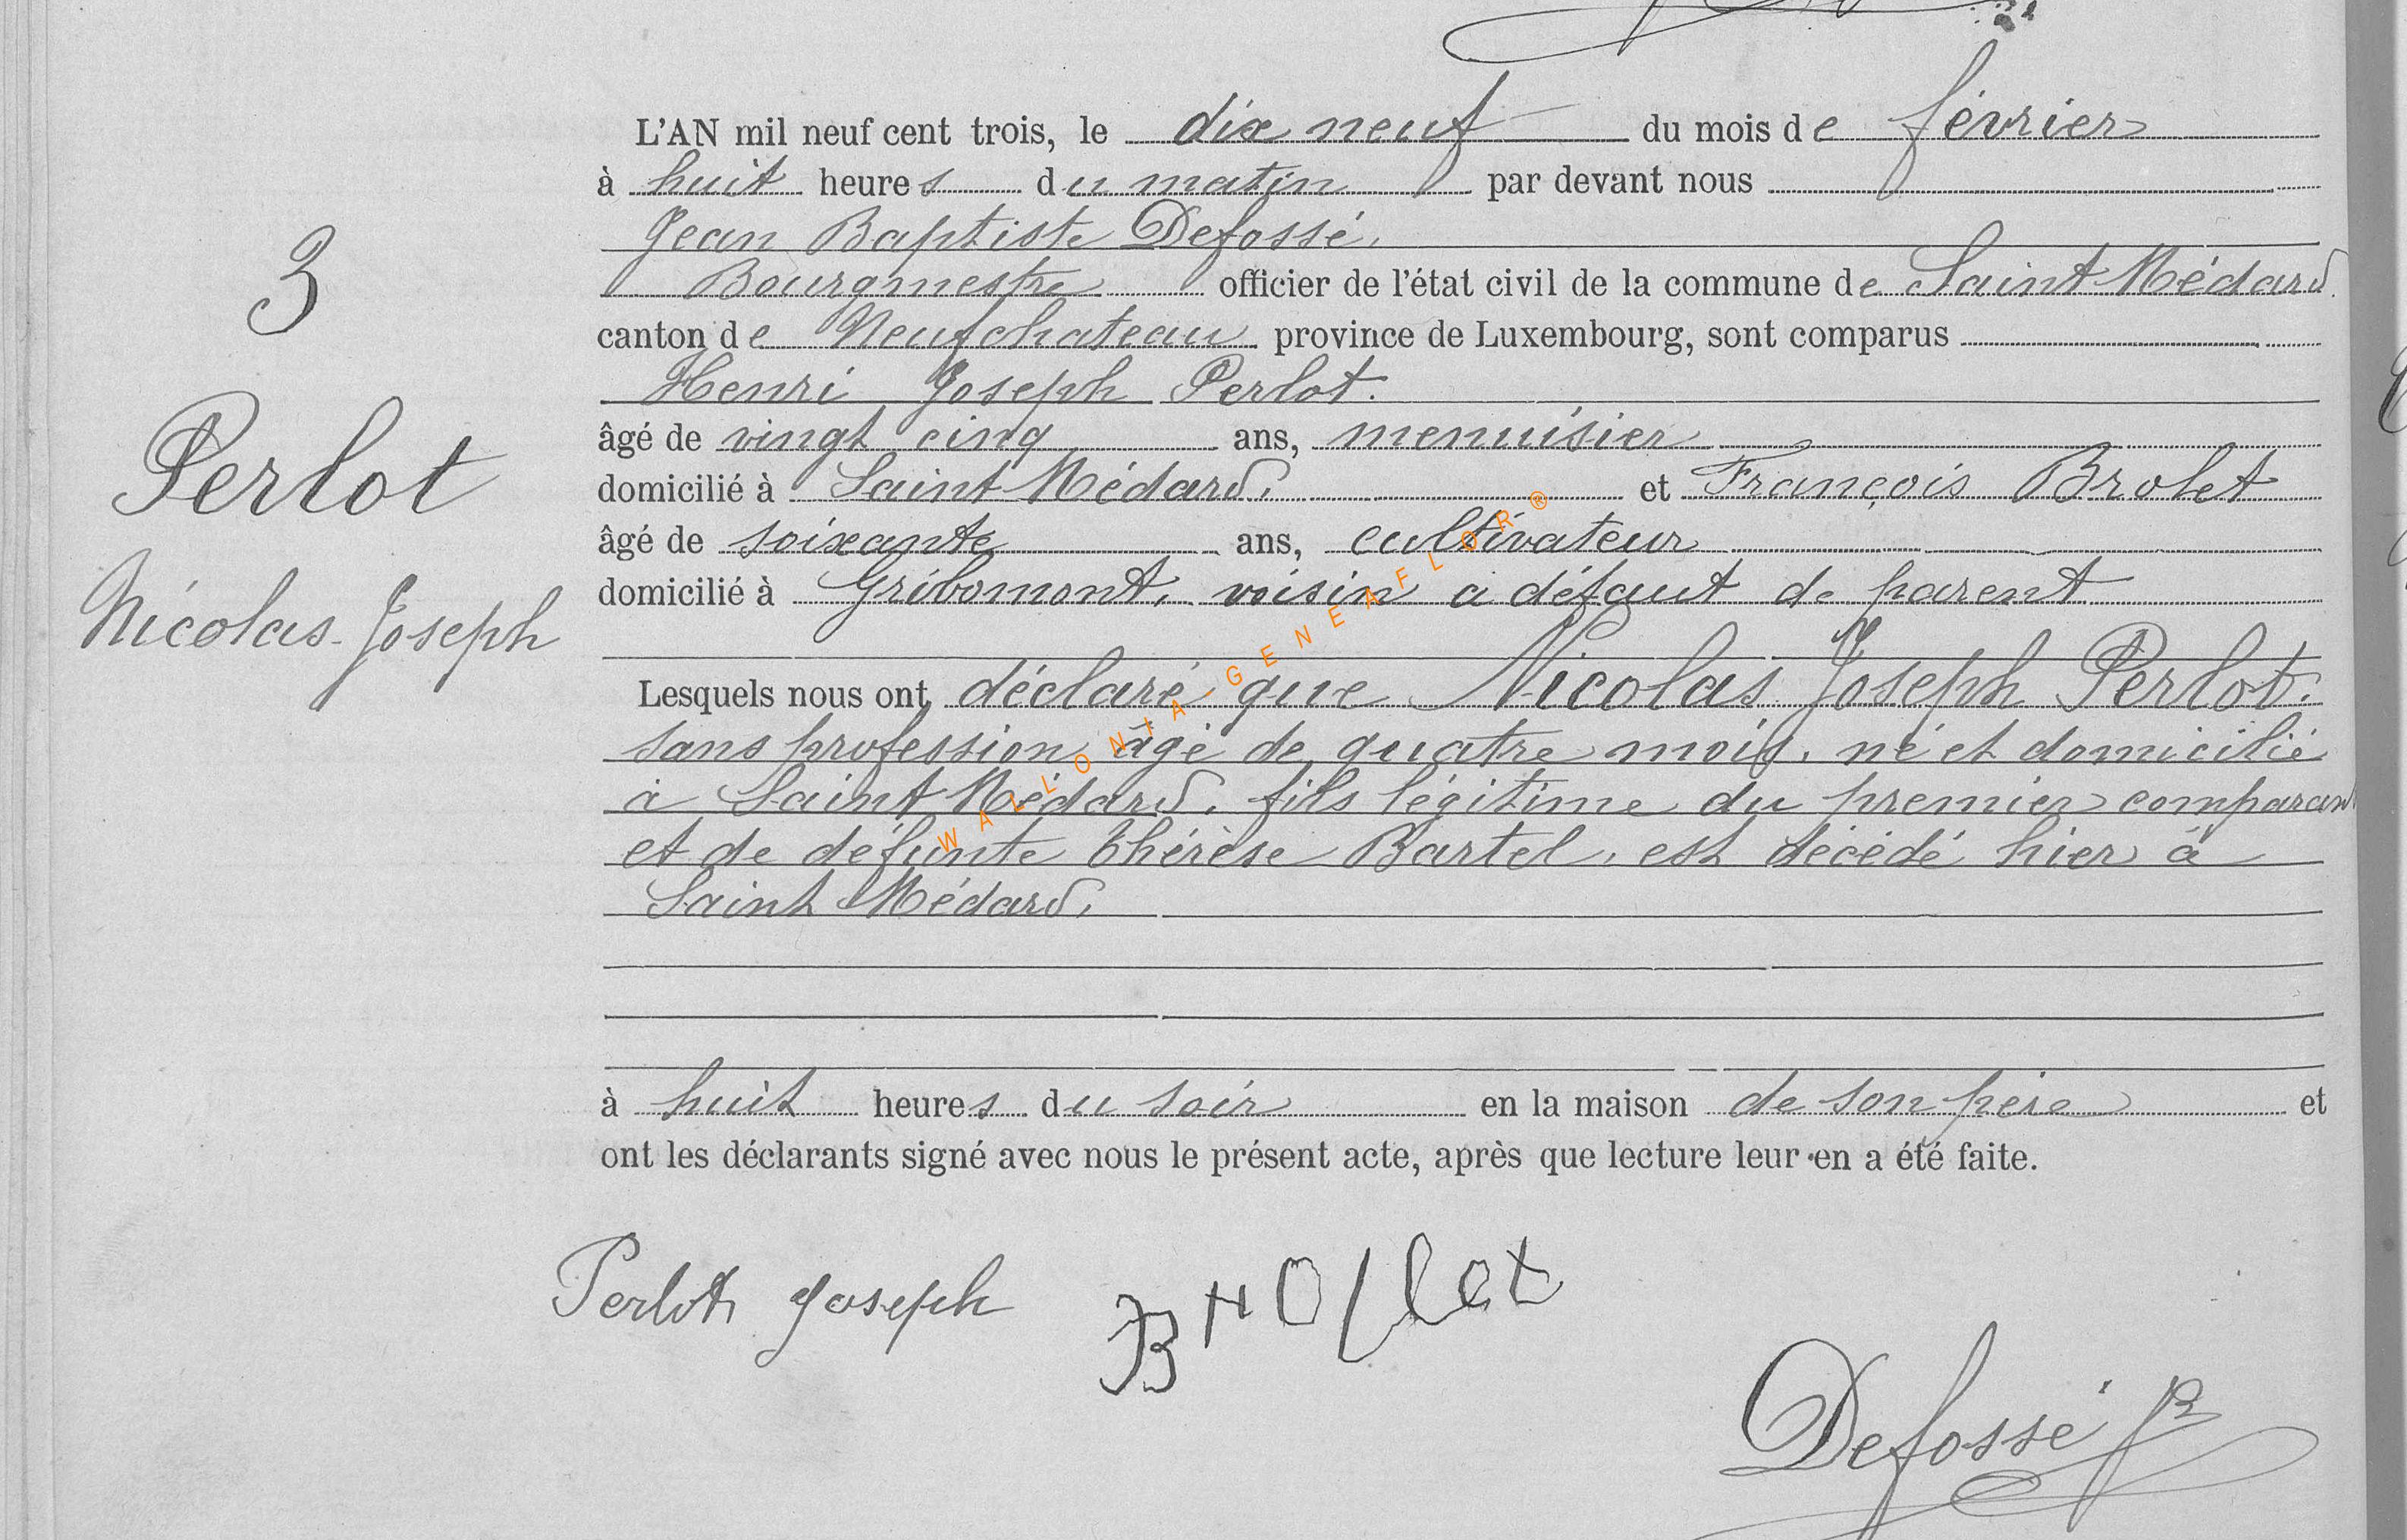 L'AN mil neuf cent trois, le dix neuf du mois de février
à huit heures du matin par devant nous
Jean Baptiste Defossé.
Bourgmestre officier de l'état civil de la commune de Saint Médard.
canton de Neufchateau province de Luxembourg, sont comparus
Henri Joseph Perlot.
âgé de vingt cinq ans, menuisier
domicilié à Saint Médard. et François Brolet
âgé de soixante ans, cultivateur
domicilié à Gribomont, voisin à défaut de parent
3
Perlot
Nicolas Joseph
Lesquels nous ont déclaré que Nicolas Joseph Perlot.
sans profession âgé de quatre mois, né et domicilié
à Saint Médard, fils légitime du premier comparant
et de défunte Thérèse Bartel, est décédé hier à
Saint Médard.
à huit heures du soir en la maison de son père et
ont les déclarants signé avec nous le présent acte, après que lecture leur en a été faite.
Perlot Joseph Brollet
Defossé JB
WALLONIA-GENEAFLOR®